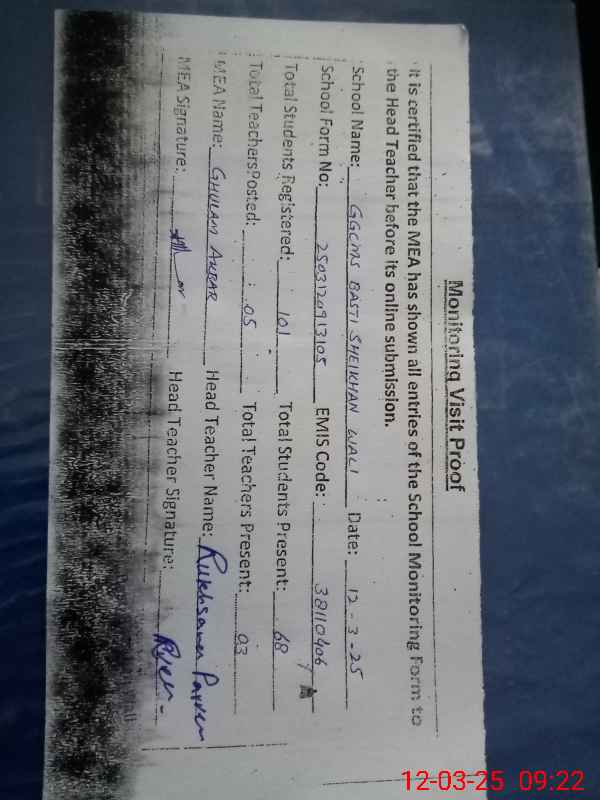 Monitoring Visit Proof
It is certified that the MEA has shown all entries of the School Monitoring Form to
the Head Teacher before its online submission.
School Name: GGCMS BASTI SHEIKHAN WALI Date: 12-3-25
School Form No: 2503120913105 EMIS Code: 38110406
Total Students Registered: 101 Total Students Present: 68
Total TeachersPosted: 05 Total Teachers Present: 03
MEA Name: GHULAM AKBAR Head Teacher Name: Rukhsana Parveen
MEA Signature: Head Teacher Signature:
12-03-25 09:22